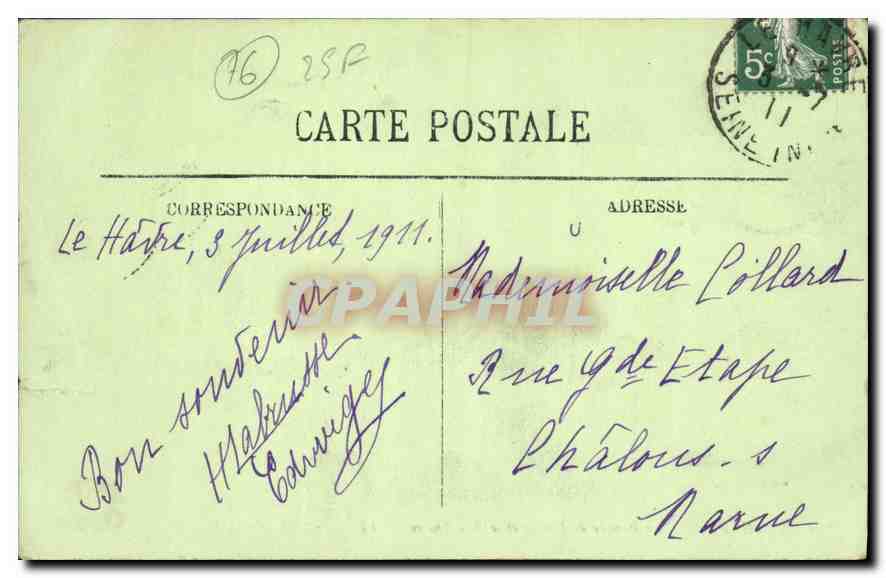 76 25F
5c POSTES
LE HAVRE
3 -7
11
SEINE INF
CARTE POSTALE
CORRESPONDANCE
ADRESSE
Le Hâvre, 3 Juillet, 1911.
Bon souvenir
Edwige
Mademoiselle Collard
Rue Gde Etape
Châlons-s
Marne
CPAPHIL